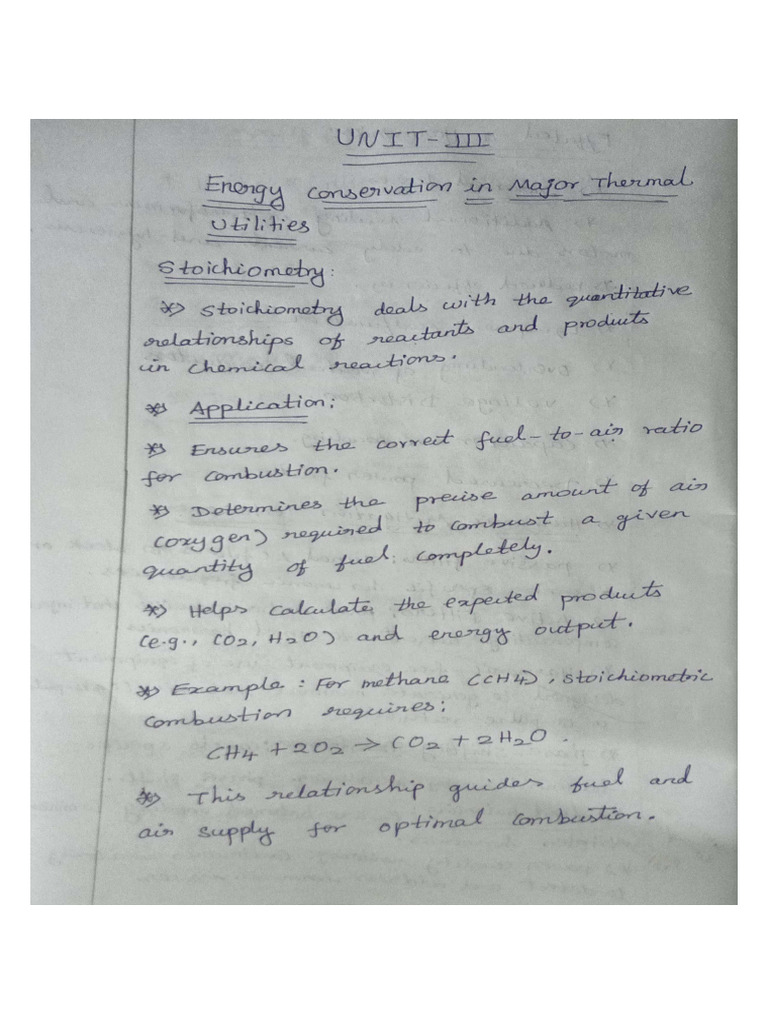 UNIT-III
Energy Conservation in Major Thermal
Utilities
Stoichiometry:
* Stoichiometry deals with the quantitative
relationships of reactants and products
in chemical reactions.
* Application:
* Ensures the correct fuel-to-air ratio
for combustion.
* Determines the precise amount of air
(oxygen) required to combust a given
quantity of fuel completely.
* Helps calculate the expected products
(e.g., CO2, H2O) and energy output.
* Example: For methane (CH4), stoichiometric
combustion requires:
CH4 + 2O2 → CO2 + 2H2O.
* This relationship guides fuel and
air supply for optimal combustion.